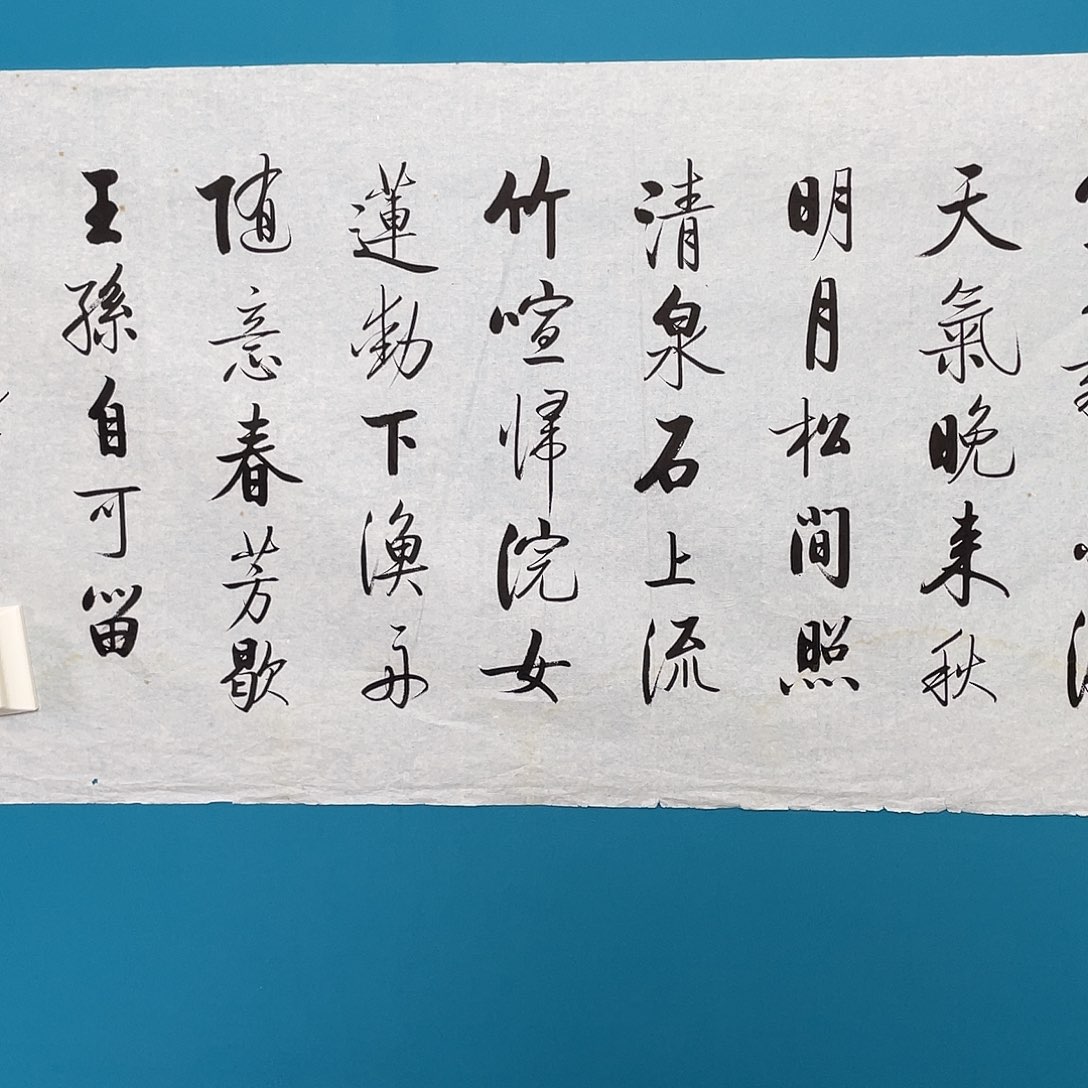 天氣晚来秋
明月松間照
清泉石上流
竹喧歸浣女
蓮動下漁舟
随意春芳歇
王孫自可留